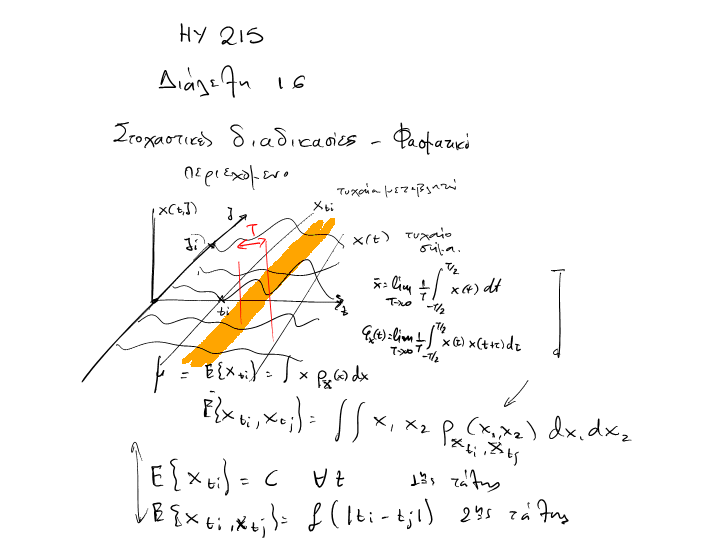 ΗΥ 215
Διάλεξη 16
Στοχαστικές διαδικασίες - Φασματικό
περιεχόμενο
τυχαία μεταβλητή
x(t,ζ) ζ T x_{ti}
ζi x(t) τυχαίο
σήμα.
x̄ = lim_{T→∞} 1/T ∫_{-T/2}^{T/2} x(t) dt
ti t
φ_x(t) = lim_{T→∞} 1/T ∫_{-T/2}^{T/2} x(τ) x(t+τ) dτ
μ = E{x_{ti}} = ∫ x p_x(x) dx
E{x_{ti}, x_{tj}} = ∫∫ x_1 x_2 p_{x_{ti}, x_{tj}}(x_1, x_2) dx_1 dx_2
E{x_{ti}} = C ∀t 1ης τάξης
E{x_{ti}, x_{tj}} = f(|ti - tj|) 2ης τάξης